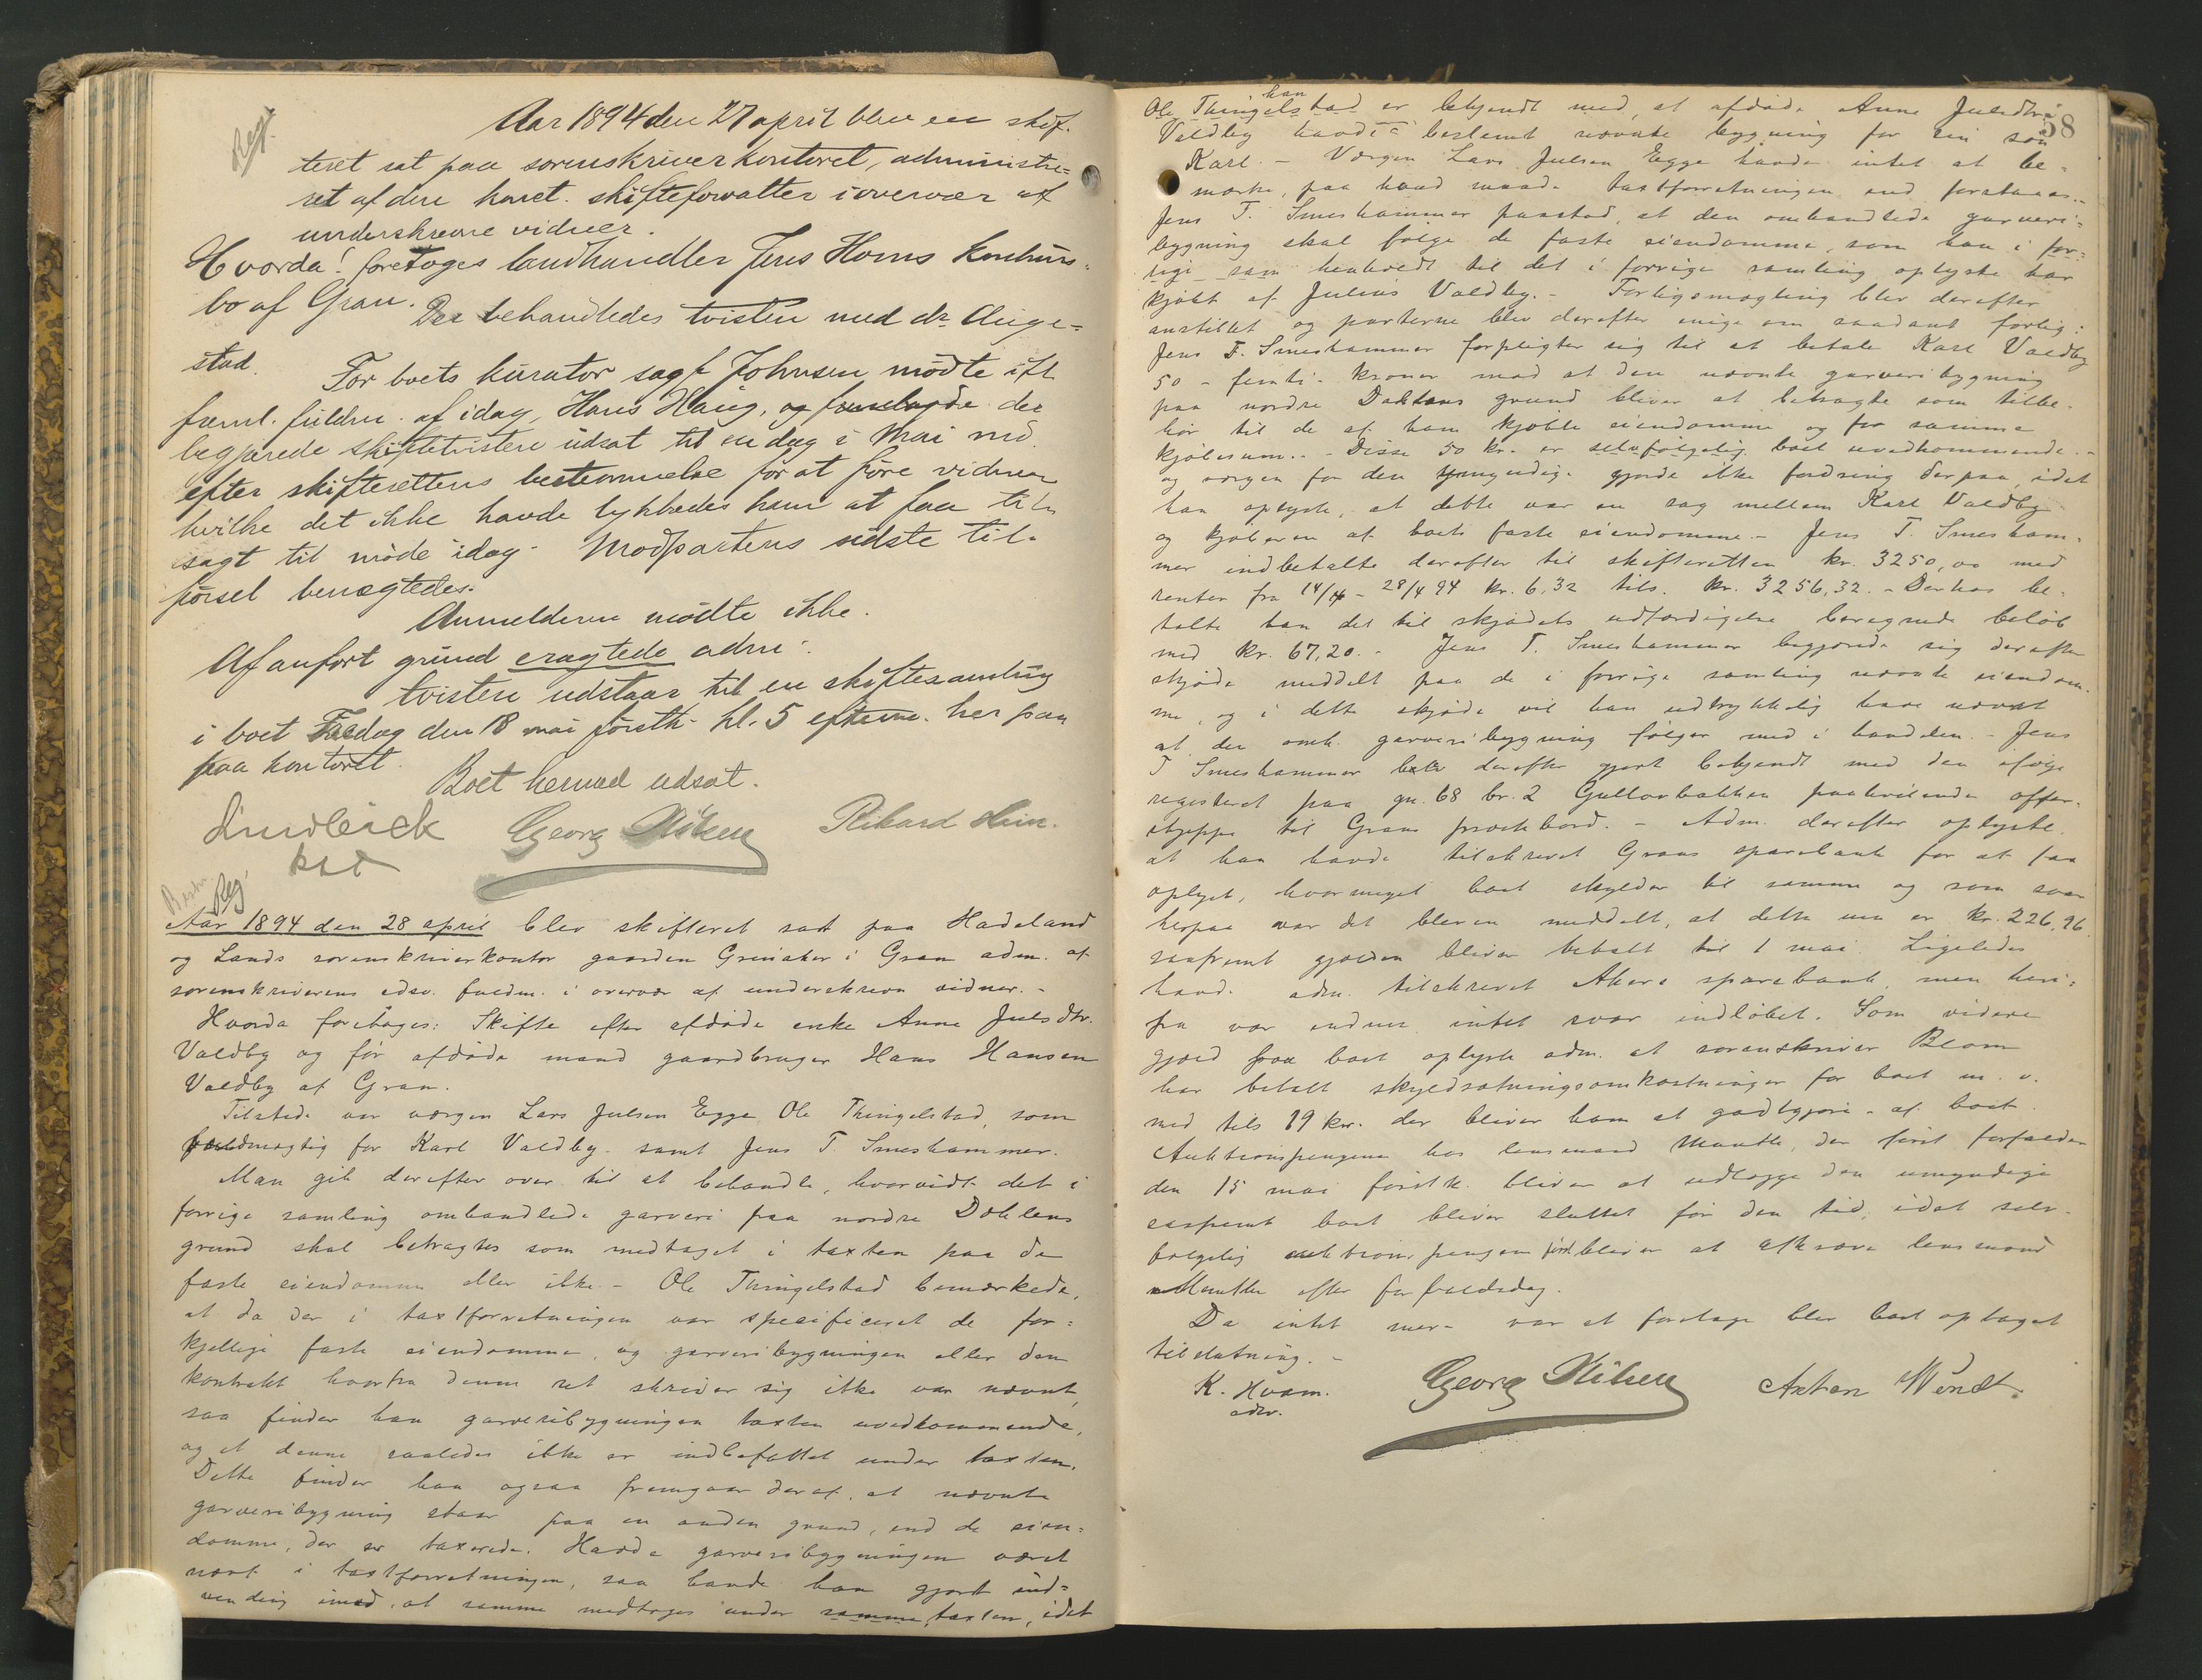 Reg.
Aar 1894 den 27 april blev en skif-
teret sat paa sorenskriverkontoret, administre-
ret af den konst. skifteforvalter i overvær af
underskrevne vidner.
Hvorda! foretoges landhandler Jens Horns konkurs-
bo af Gran.
Der behandledes tvisten med dr. Auge-
stad.
For boets kurator sagf. Johnsen mødte ifl.
freml. fuldm. af idag, Hans Haug, og fremlagde der
begjærede skiftetvisten udsat til en dag i Mai md.
efter skifterettens bestemmelse for at føre vidner
hvilke det ikke havde lykkedes ham at faa til-
sagt til møde idag. Modpartens sidste til-
førsel benægtedes.
Anmelderen mødte ikke.
Af anført grund eragtede adm:
tvisten udstaar til en skiftesamling
i boet Fredag den 18 mai førstk. kl. 5 efterm. her paa
paa kontoret.
Boet hermed udsat.
Lindboick Georg Nilsen Rikard Hein.
kst
Reg.
Aar 1894 den 28 april blev skifteret sat paa Hadeland
og Lands sorenskriverkontor gaarden Grinaker i Gran adm. af
sorenskriverens edsv. fuldm. i overvær af underskrevne vidner. -
Hvorda foretoges: Skifte efter afdøde enke Anne Julsdtr.
Valdby og før afdøde mand gaardbruger Hans Hansen
Valdby af Gran.
Tilstede var værgen Lars Julsen Egge, Ole Thingelstad, som
fuldmægtig for Karl Valdby samt Jens T. Smeshammer.
Man gik derefter over til at behandle, hvorvidt det i
forrige samling omhandlede garveri paa nordre Dæhlens
grund skal betragtes som medtaget i taxten paa de
faste eiendomme eller ikke. - Ole Thingelstad bemærkede,
at da der i taxtforretningen var specificeret de for-
kjellige faste eiendomme, og garveribygningen eller den
kontrakt hvorfra denne ret skriver sig ikke var nævnt,
saa finder han garveribygningen taxten uvedkommende,
og at denne saaledes ikke er indbefattet under taxten.
Dette finder han ogsaa fremgaar deraf, at nævnte
garveribygning staar paa en anden grund, end de eien-
domme, der er taxerede. Havde garveribygningen været
nævnt i taxtforretningen, saa havde han gjort ind-
vending imod, at samme medtoges under samme taxten, idet
58
han
Ole Thingelstad er bekjendt med, at afdøde Anne Julsdtr.
Valdby havde bestemt nævnte bygning for sin søn
Karl. - Værgen Lars Julsen Egge havde intet at be-
mærke, paa hvad maade taxtforretningen end forstaaes. -
Jens T. Smeshammer paastod, at den omhandlede garveri-
bygning skal følge de faste eiendomme, som han i for-
rige som henholdt til det i forrige samling oplyste har
kjøbt af Julius Valdby. - Forligsmægling blev derefter
anstillet og parterne blev derefter enige om saadant forlig:
Jens T. Smeshammer forpligter sig til at betale Karl Valdby
50 - femti - kroner mod at den nævnte garveribygning
paa nordre Dæhlens grund bliver at betragte som tilbe-
hør til de af ham kjøbte eiendomme og for samme
kjøbesum. - Disse 50 kr. er selvfølgelig boet uvedkommende. -
og værgen for den umyndige gjorde ikke fordring derpaa, idet
han oplyste, at dette var en sag mellem Karl Valdby
og kjøberen af boets faste eiendomme. - Jens T. Smesham-
mer indbetalte derefter til skifteretten kr. 3250,00 med
renter fra 14/4 - 28/4 94 kr. 6,32 tils. kr. 3256,32. - Derhos be-
talte han det til skjødets udfærdigelse beregnede beløb
med kr. 67,20. - Jens T. Smeshammer begjærede sig derefter
skjøde meddelt paa de i forrige samling nævnte eiendom-
me, og i dette skjøde vil han udtrykkelig have nævnt
at den omh. garveribygning følger med i handelen. - Jens
T Smeshammer blev derefter gjort bekjendt med den ifølge
registeret paa gn. 68 br. 2 Gullovbakken paahvilende offer-
skjeppe til Grans prestebord. - Adm. derefter oplyste,
at han havde tilskrevet Grans sparebank for at faa
oplyst, hvormeget boet skylder til samme og som svar
herpaa var det bleven meddelt, at dette nu er kr. 226,96
saafremt gjælden bliver betalt til 1 mai. Ligeledes
havde adm. tilskrevet Akers sparebank, men heri-
fra var endnu intet svar indløbet. Som videre
gjæld paa boet oplyste adm. at sorenskriver Blom
har betalt skyldsætningsomkostninger for boet m. v.
med tils 19 kr. der bliver ham at godtgjøre af boet.
Auktionspengene hos lensmand Manthe, der først forfalder
den 15 mai førstk. bliver at udlægge den umyndige
saafremt boet bliver sluttet før den tid, idet selv-
følgelig auktionspengene først bliver at afkræve lensmand
Manthe efter forfaldsdag.
Da intet mere var at foretage blev boet optaget
til slutning. -
K. Hvam. Georg Nilsen Anton Wendt.
edsv.